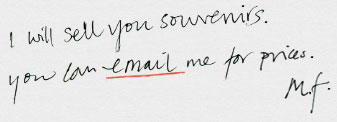 I will sell you souvenirs.
you can email me for prices.
M.f.